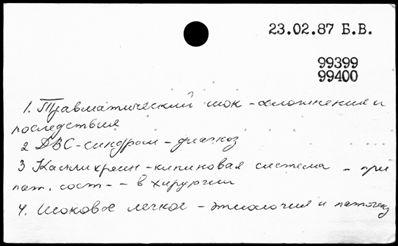 23.02.87 Б.В.
99399
99400
1. Травматический шок - осложнения и
последствия
2 ДВС-синдром - диагноз
3 Калликреин-кининовая система - при
пат. сост - - в хирургии
4. Шоковое легкое - этиология и патогенез